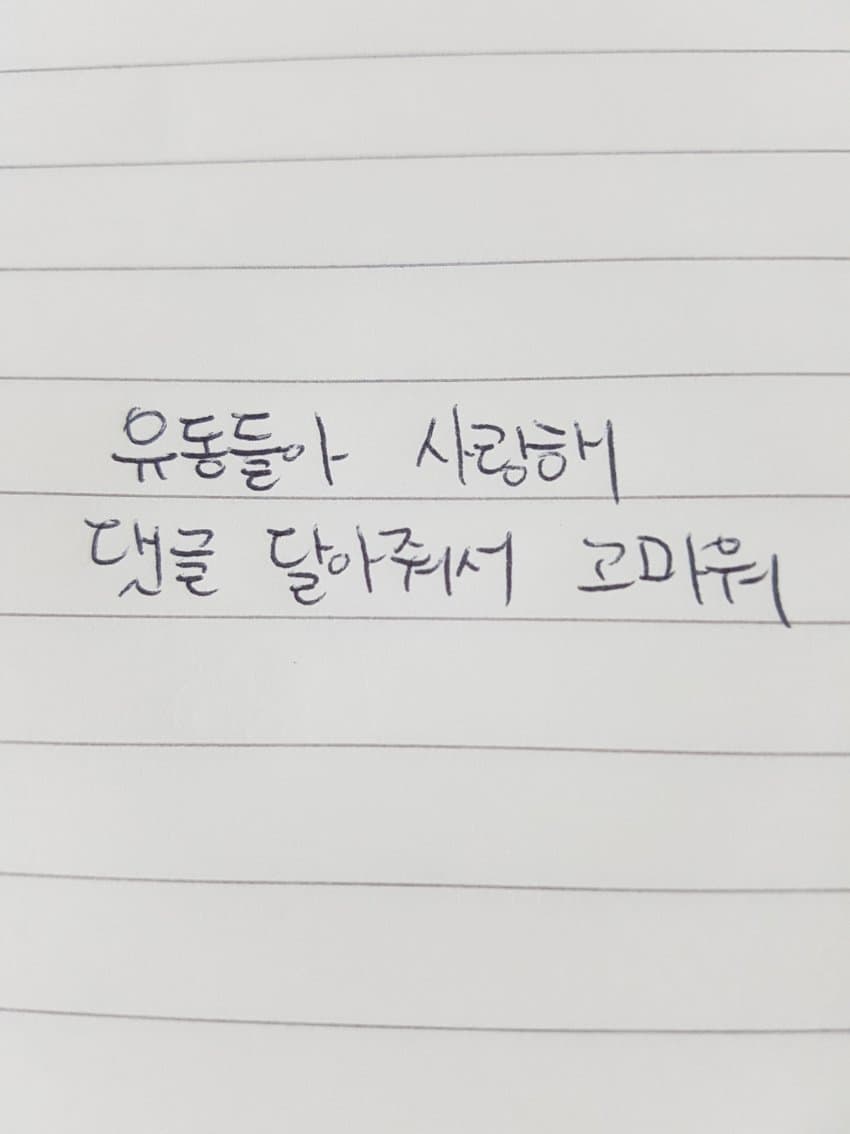 유동들아 사랑해
댓글 달아줘서 고마워